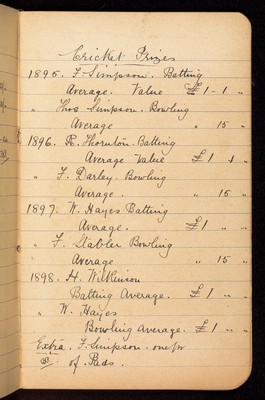 Cricket Prizes
1895. F. Simpson. Batting
Average. Value £1-1 "
" Thos Simpson. Bowling
Average " 15 "
1896. R. Thornton. Batting
Average Value £1 1 "
" F. Darley. Bowling
Average. " 15 "
1897. W. Hayes Batting
Average. £1 " "
" F. Stabler Bowling
Average " 15 "
1898. H. Wilkinson
Batting Average. £1 " "
" W. Hayes
Bowling Average. £1 " "
Extra. F. Simpson. one pr
of Pads.